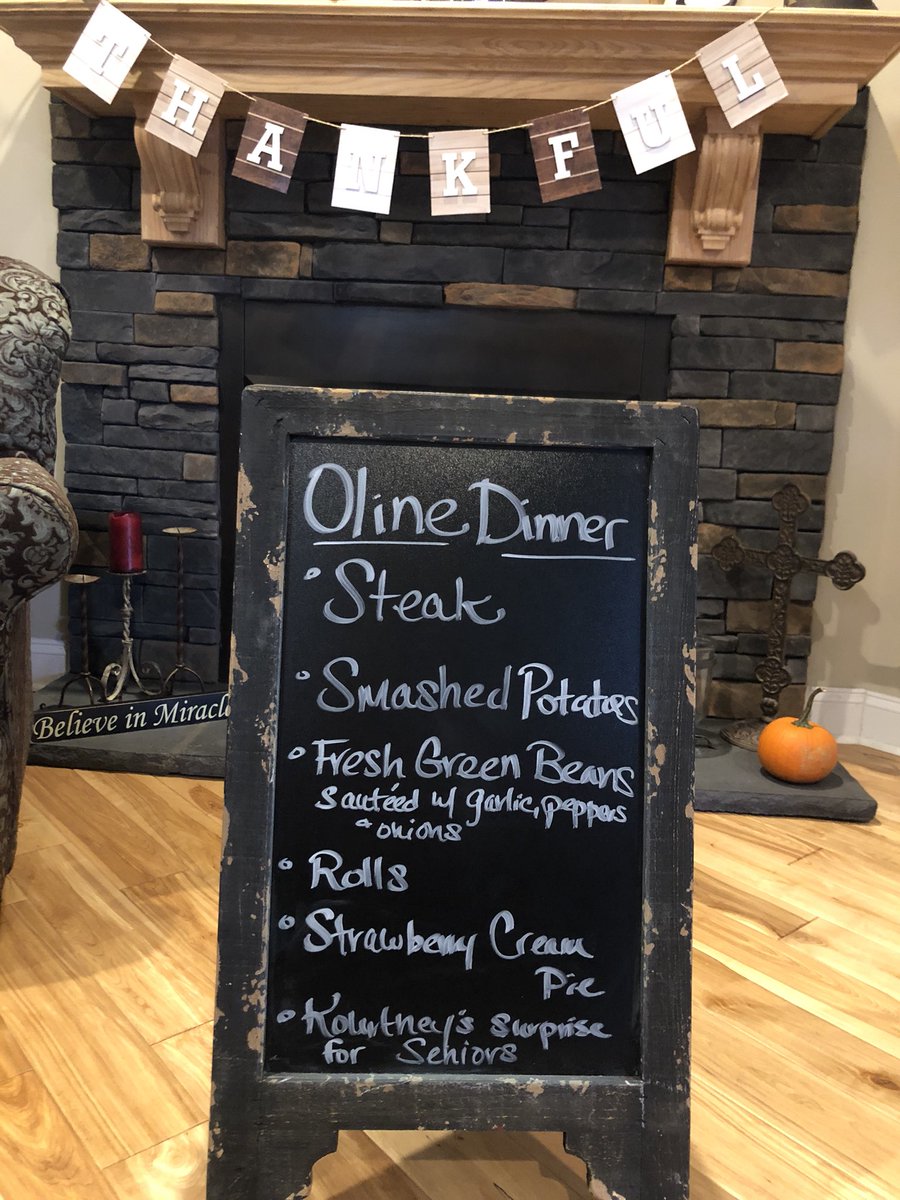 THANKFUL
Oline Dinner
• Steak
• Smashed Potatoes
• Fresh Green Beans
sautéed w/ garlic, peppers
& onions
• Rolls
• Strawberry Cream
Pie
• Kourtney's surprise
for Seniors
Believe in Miracle